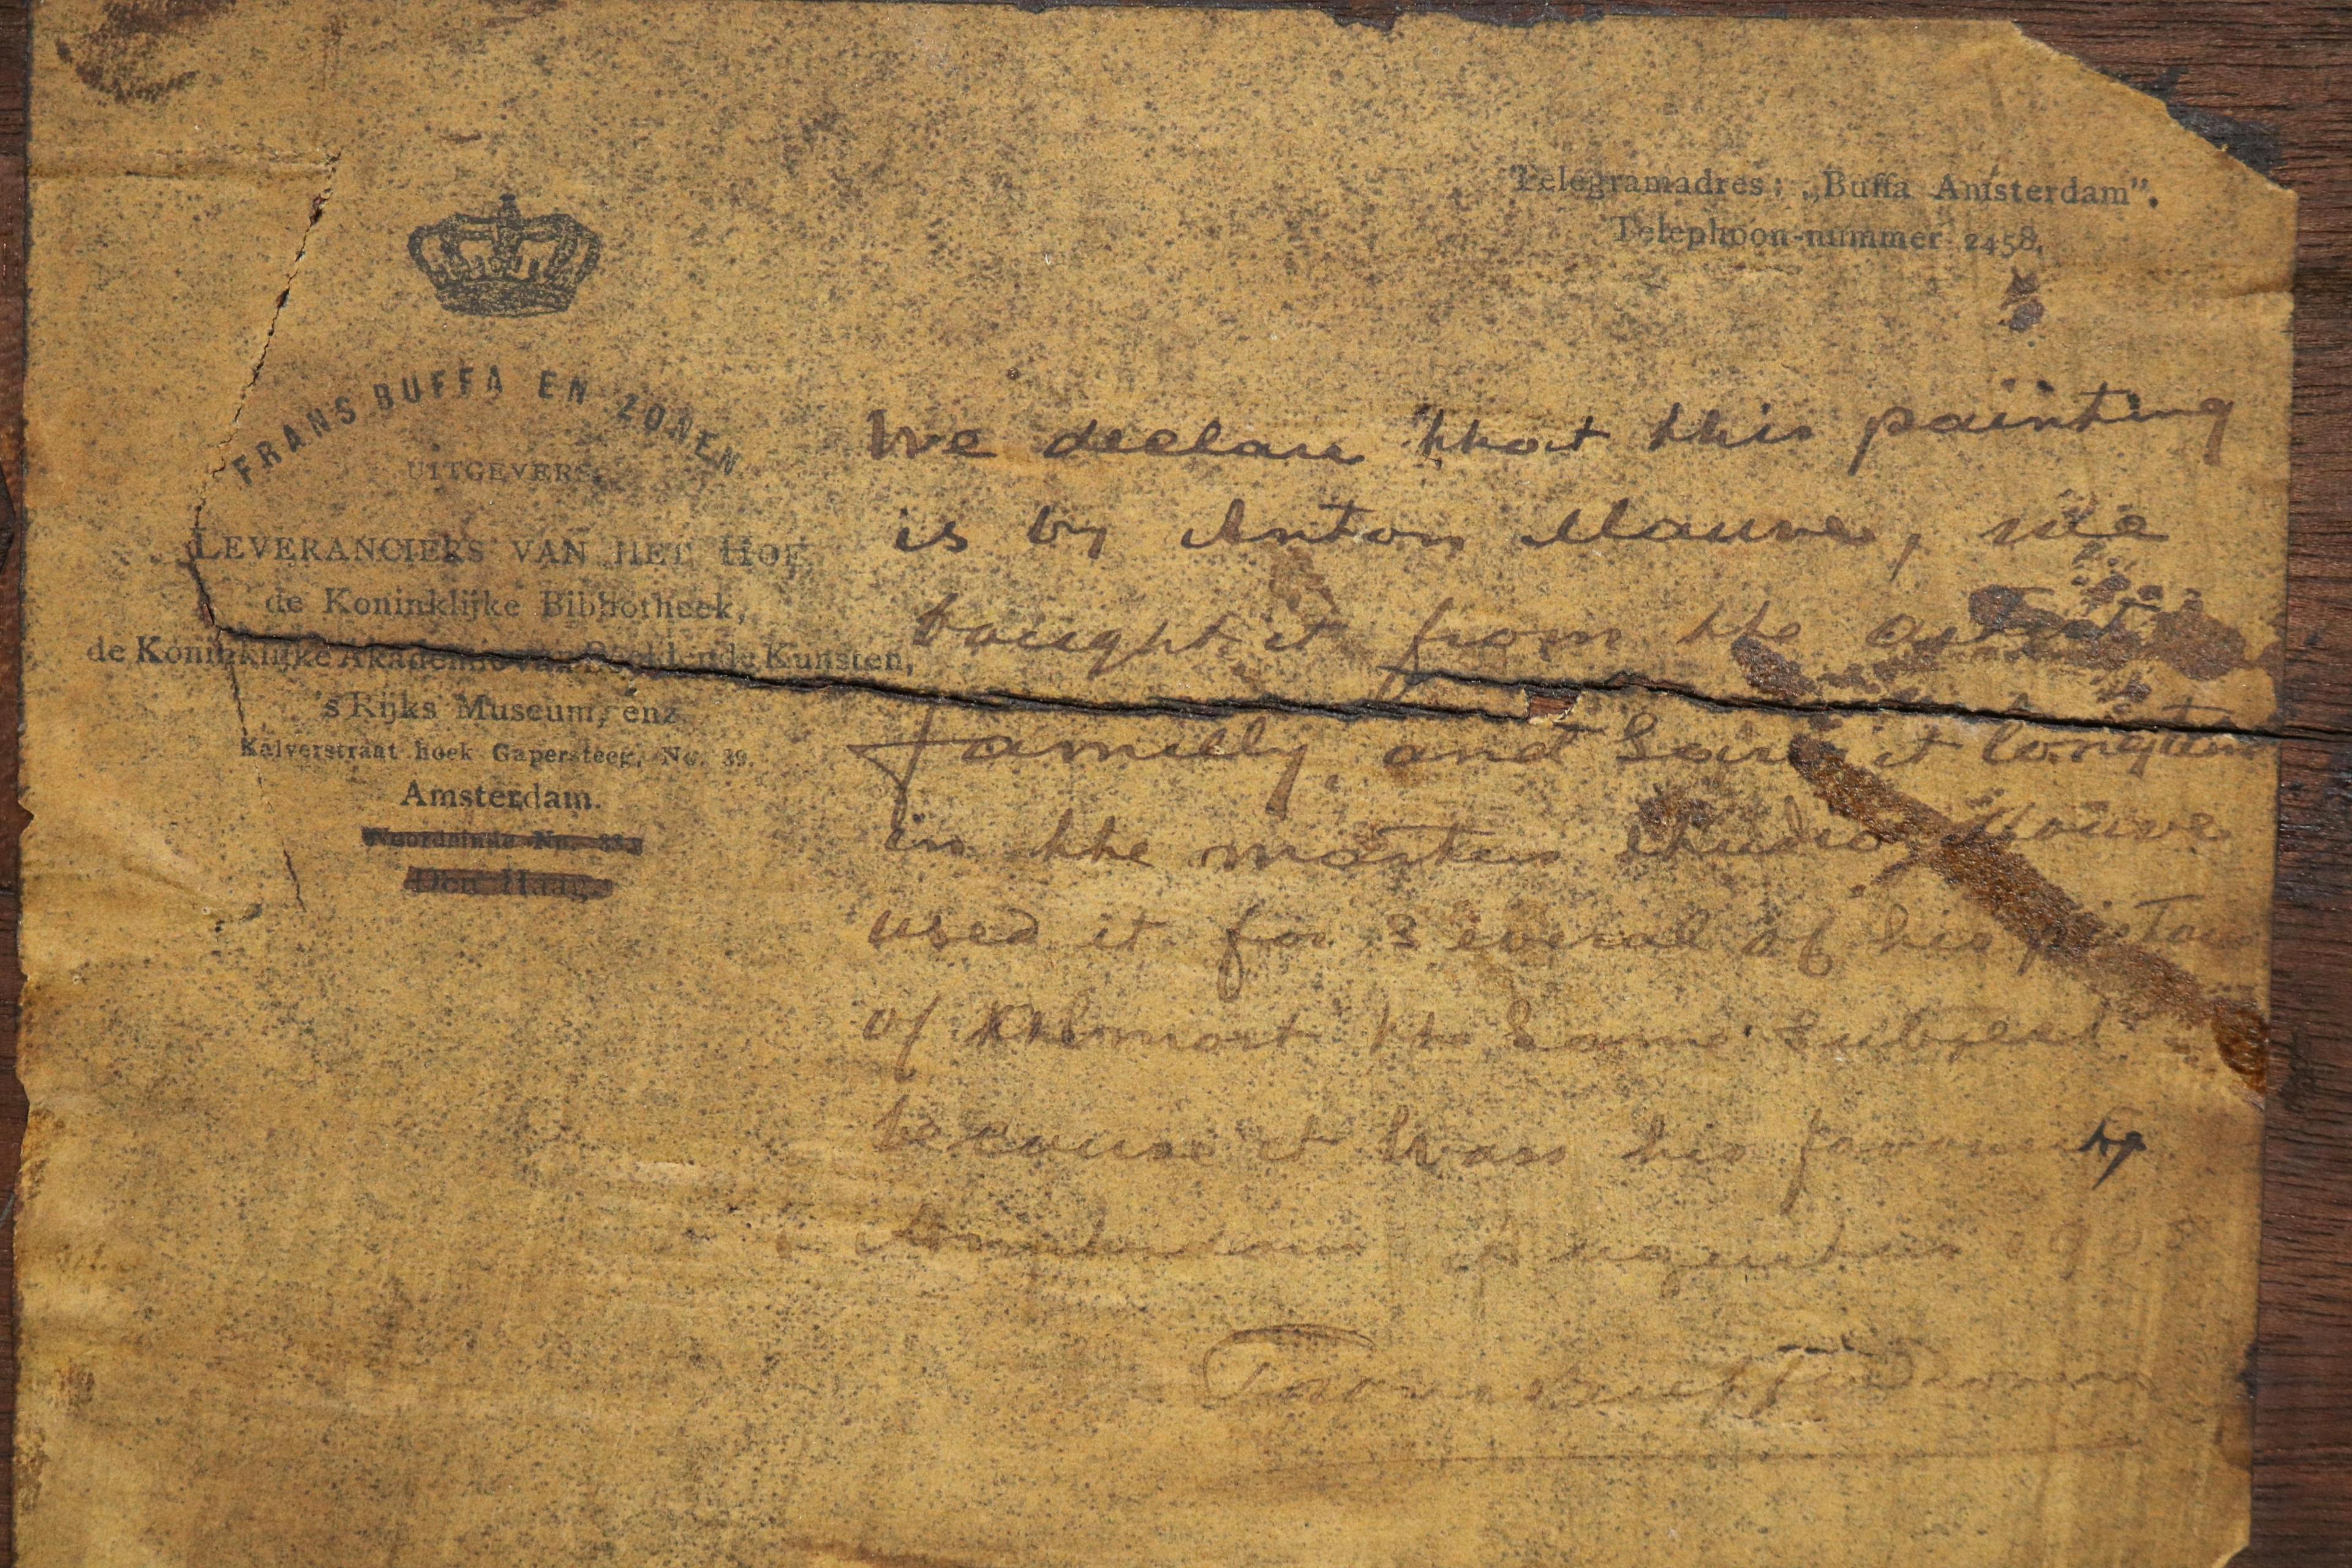 Telegramadres: „Buffa Amsterdam".
Telephoon-nummer 2458.
FRANS BUFFA EN ZONEN
UITGEVERS.
LEVERANCIERS VAN HET HOF,
de Koninklijke Bibliotheek,
de Koninklijke Akademie van Beeldende Kunsten,
'sRijks Museum, enz.
Kalverstraat hoek Gapersteeg, No. 39.
Amsterdam.
Noordeinde No.
Den Haag.
We declare that this painting
is by Anton Mauve, we
bought it from the artist
familly, and it
in the masters studio, Mauve
used it for several of his
of allmost the same subject
because it was his
Amsterdam Augustus
Frans Buffa en Zonen